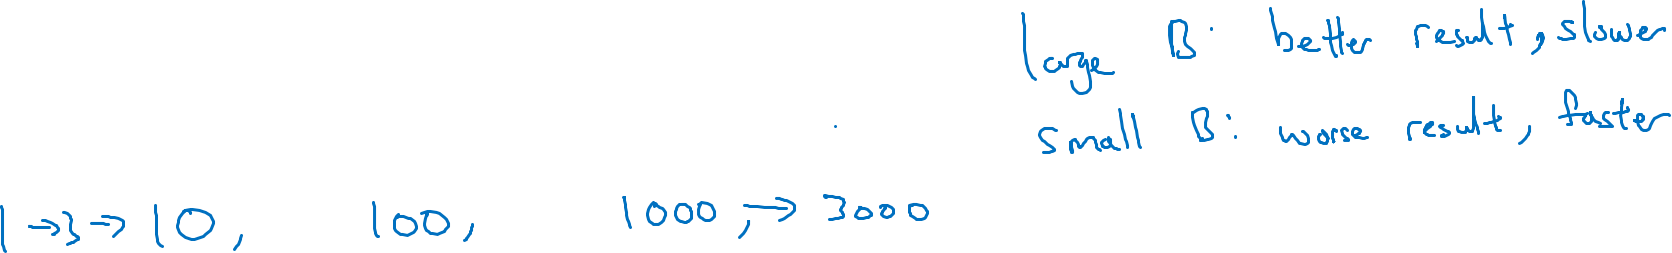 large B: better result, slower
small B: worse result, faster
1 → 3 → 10, 100, 1000, → 3000